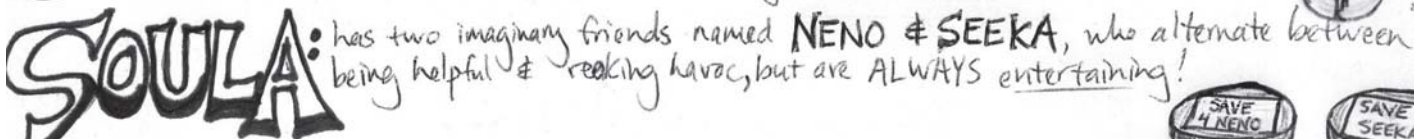 SOULA: has two imaginary friends named NENO & SEEKA, who alternate between
being helpful & reeking havoc, but are ALWAYS entertaining!
SAVE
4 NENO
SAVE
SEEK